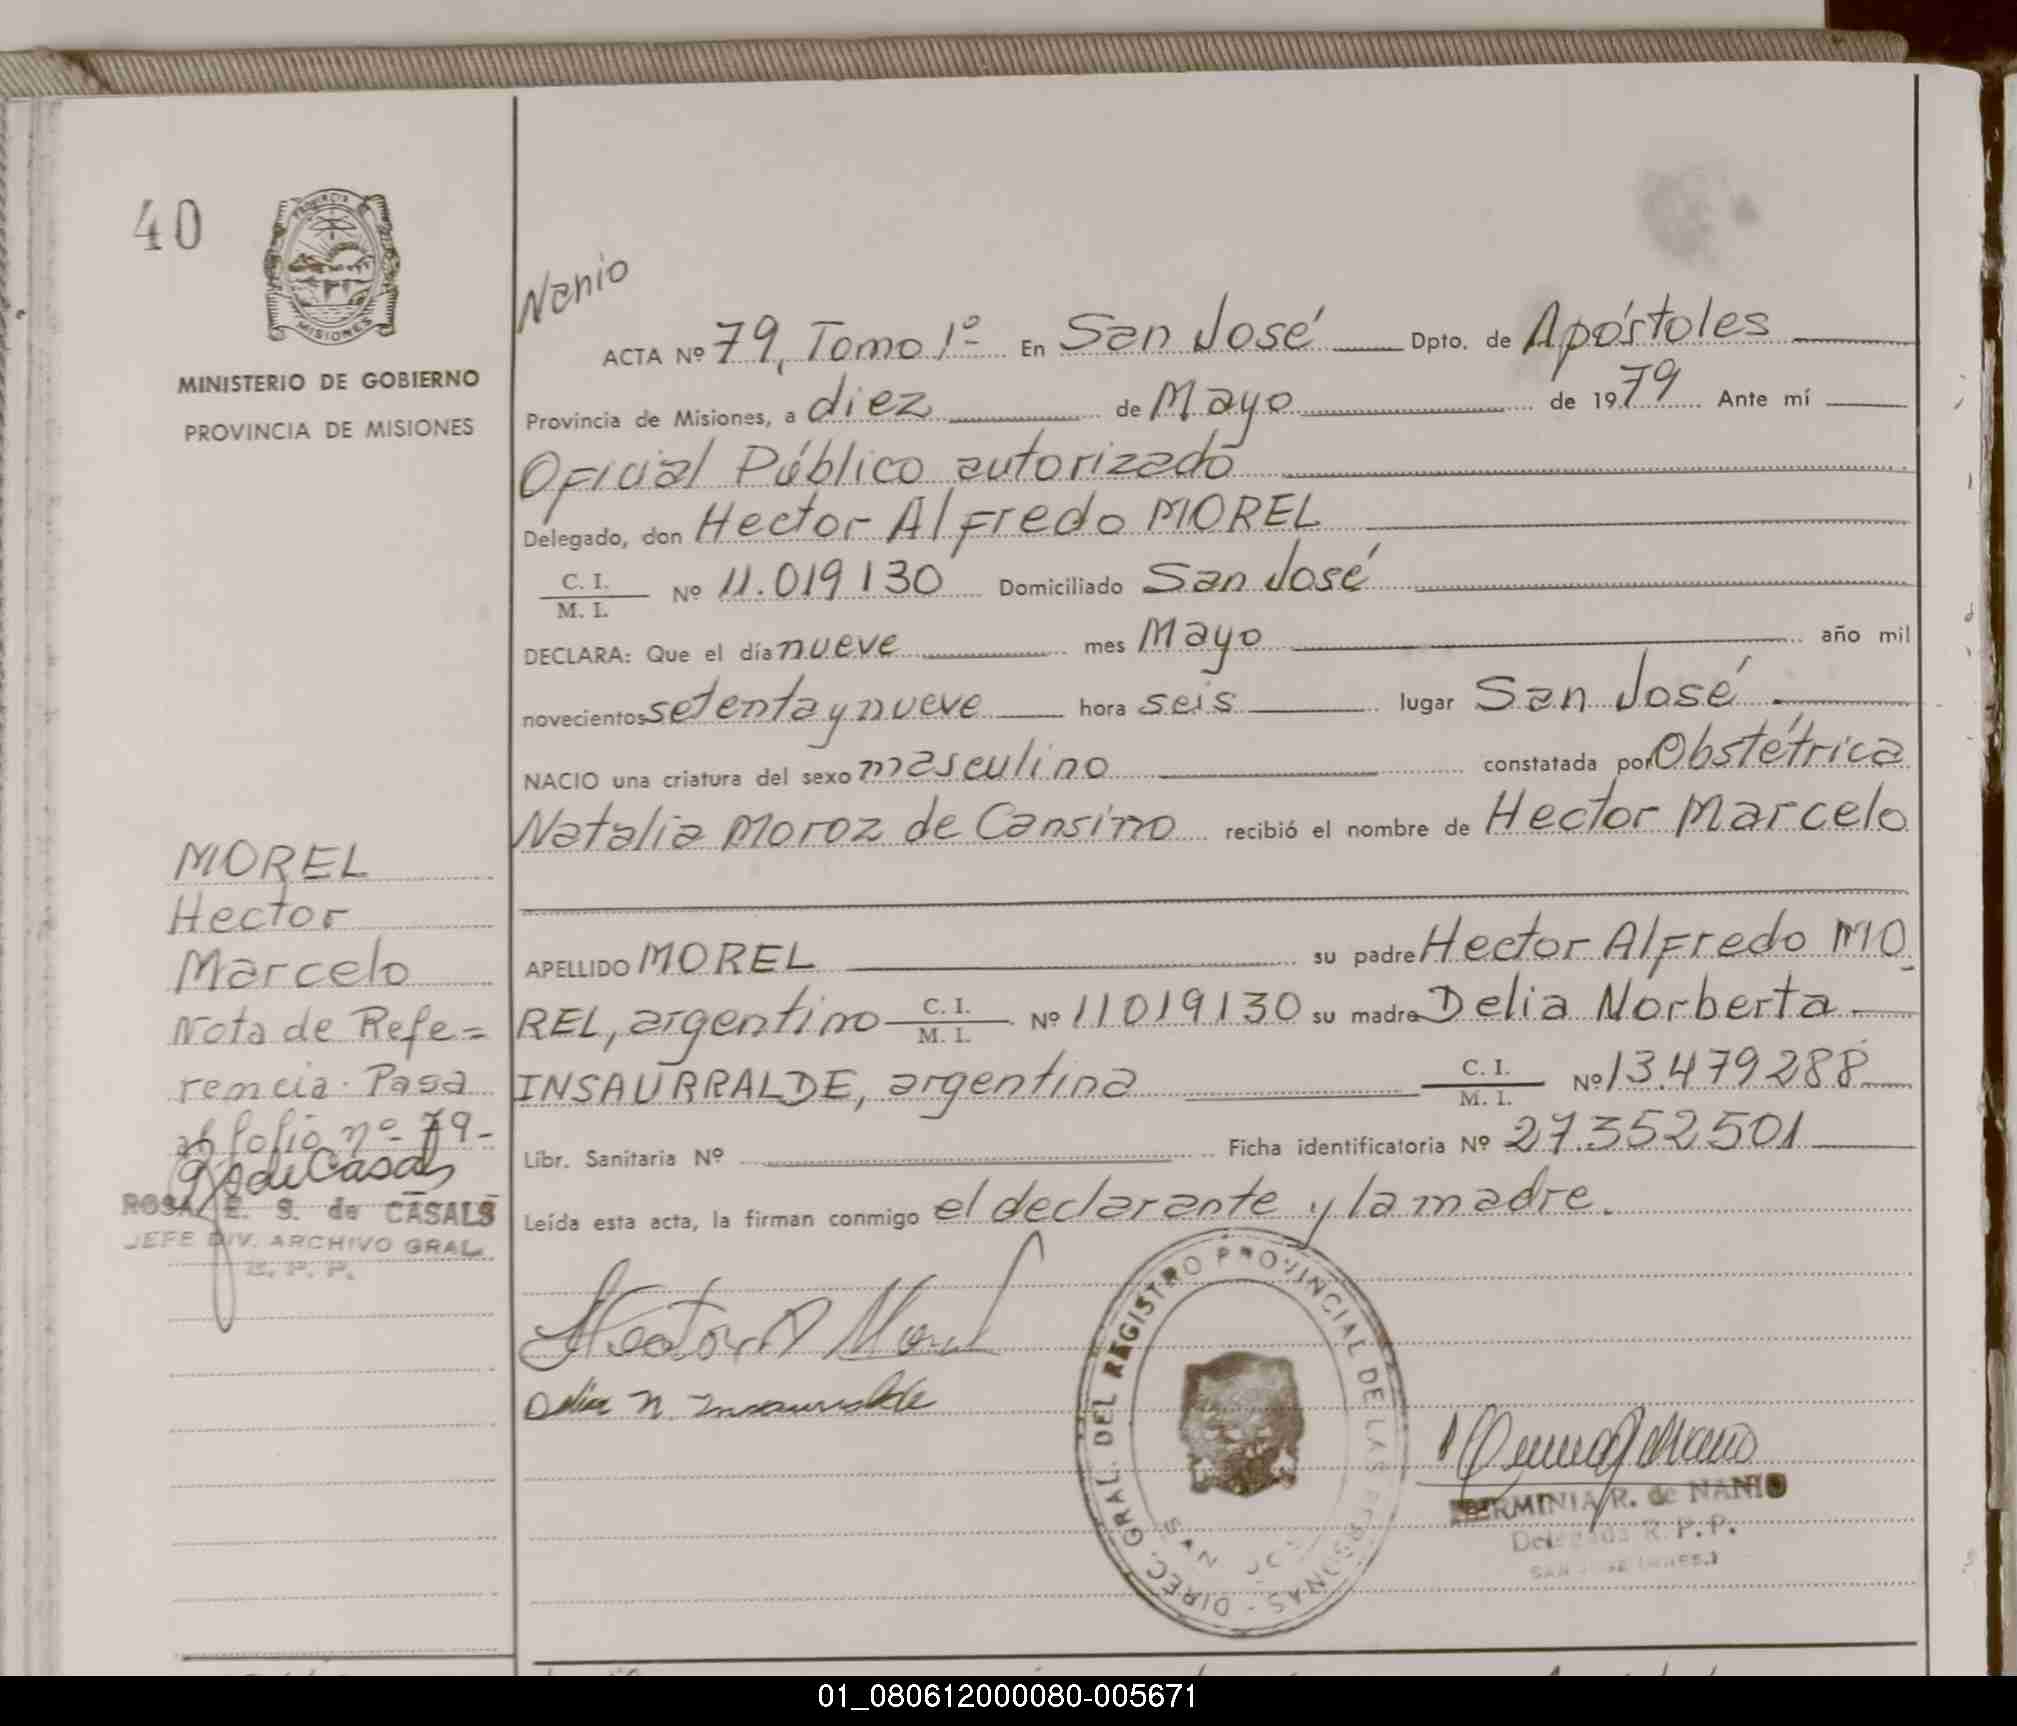 40
PROVINCIA
MISIONES
MINISTERIO DE GOBIERNO
PROVINCIA DE MISIONES
MOREL
Hector
Marcelo
Nota de Refe=
rencia. Pasa
al folio nº 79-
ROSA E. S. de CASALS
JEFE DIV. ARCHIVO GRAL.
R. P. P.
Nanio
ACTA Nº 79, Tomo 1º En San José Dpto. de Apóstoles
Provincia de Misiones, a diez de Mayo de 1979 Ante mí
Oficial Público autorizado
Delegado, don Hector Alfredo MOREL
C. I.
M. I. Nº 11.019130 Domiciliado San José
DECLARA: Que el día nueve mes Mayo año mil
novecientos setenta y nueve hora seis lugar San José
NACIO una criatura del sexo masculino constatada por Obstétrica
Natalia Moroz de Cansino recibió el nombre de Hector Marcelo
APELLIDO MOREL su padre Hector Alfredo MO
REL, argentino C. I. M. I. Nº 11019130 su madre Delia Norberta
INSAURRALDE, argentina C. I. M. I. Nº 13.479288
Libr. Sanitaria Nº Ficha identificatoria Nº 27.352501
Leída esta acta, la firman conmigo el declarante y la madre.
Hector A Morel
Delia N. Insaurralde
DIREC. GRAL. DEL REGISTRO PROVINCIAL DE LAS PERSONAS -
SAN JOSE
HERMINIA R. de NANIO
Delegada R. P. P.
SAN JOSE (MNES.)
01_080612000080-005671